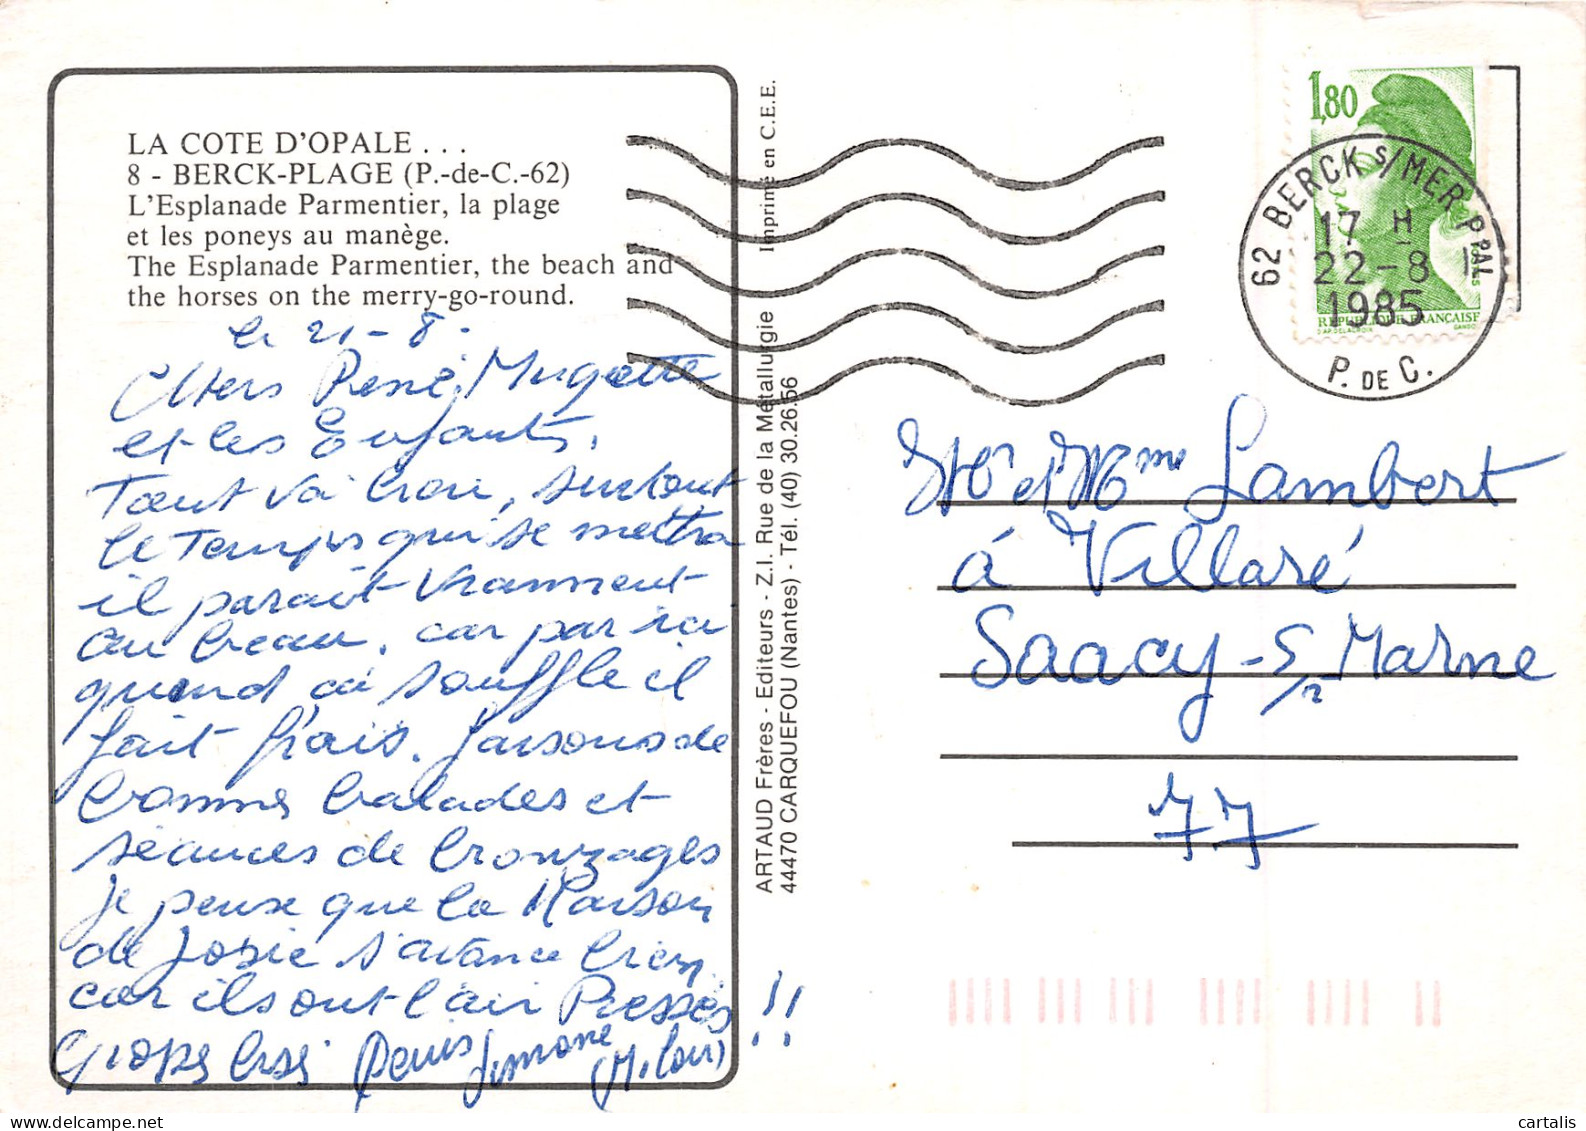 LA COTE D'OPALE . . .
8 - BERCK-PLAGE (P.-de-C.-62)
L'Esplanade Parmentier, la plage
et les poneys au manège.
The Esplanade Parmentier, the beach and
the horses on the merry-go-round.
le 21-8.
Chers René, Mugette
et les Enfants,
Tout va bien, surtout
le Temps qui se mettra
il parait vraiment
au beau, car par ici
quand ça souffle il
fait frais. faisons de
bonnes balades et
séances de bronzages
Je pense que la Maison
de Josie s'avance bien
car ils ont l'air Pressés !!
Groses bises Denis Simone
ARTAUD Frères - Editeurs - Z.I. Rue de la Métallurgie
44470 CARQUEFOU (Nantes) - Tél. (40) 30.26.56
Imprimé en C.E.E.
1,80
REPUBLIQUE FRANÇAISE
D'AP. DELACROIX GANDON
62 BERCK S/MER PPAL
17 H
22-8
1985
P. DE C.
Mr et Mme Lambert
à Villaré
Saacy-s/ Marne
77
cartalis